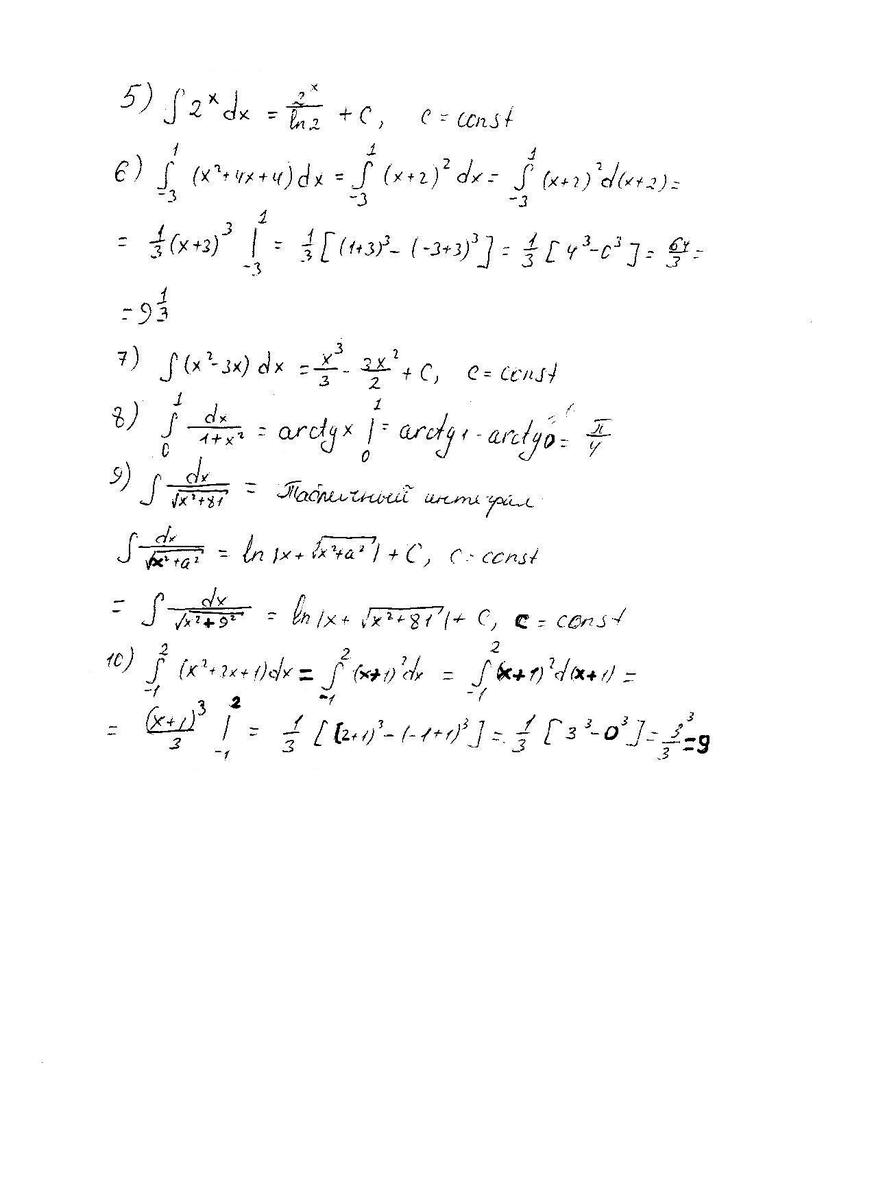 5) ∫ 2^x dx = 2^x / ln2 + C, c = const
6) ∫_{-3}^{1} (x²+4x+4) dx = ∫_{-3}^{1} (x+2)² dx = ∫_{-3}^{1} (x+2)² d(x+2) =
= 1/3 (x+3)³ |_{-3}^{1} = 1/3 [(1+3)³ - (-3+3)³] = 1/3 [4³-0³] = 64/3 =
= 9 1/3
7) ∫ (x²-3x) dx = x³/3 - 3x²/2 + C, c = const
8) ∫_{0}^{1} dx/(1+x²) = arctg x |_{0}^{1} = arctg 1 - arctg 0 = π/4
9) ∫ dx/√(x²+81) = Табличный интеграл
∫ dx/√(x²+a²) = ln |x+√(x²+a²)| + C, c = const
= ∫ dx/√(x²+9²) = ln |x+√(x²+81)| + C, c = const
10) ∫_{-1}^{2} (x²+2x+1) dx = ∫_{-1}^{2} (x+1)² dx = ∫_{-1}^{2} (x+1)² d(x+1) =
= (x+1)³/3 |_{-1}^{2} = 1/3 [(2+1)³ - (-1+1)³] = 1/3 [3³-0³] = 3³/3 = 9